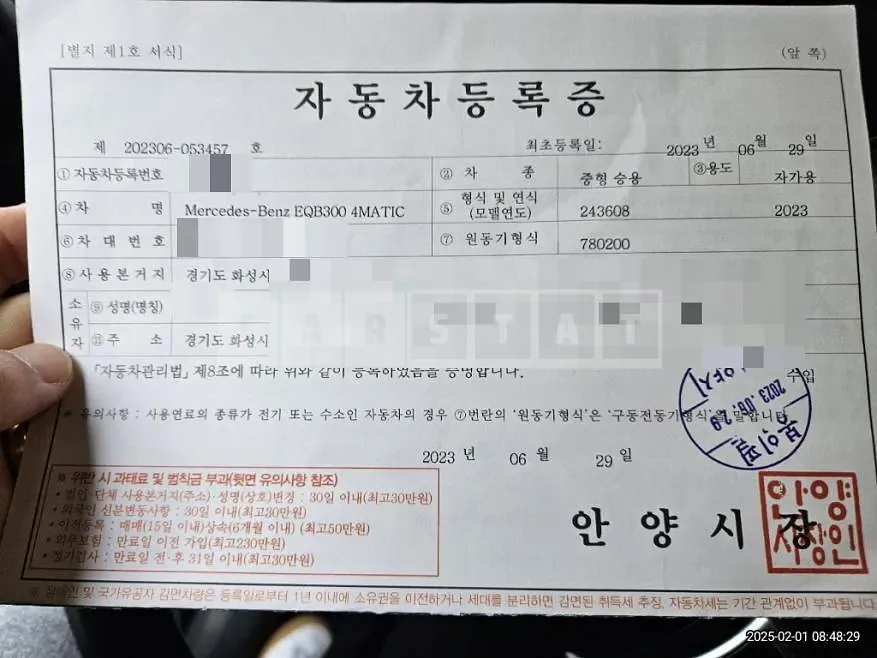 [별지 제1호 서식]
(앞 쪽)
자동차등록증
제 202306-053457 호
최초등록일: 2023년 06월 29일
① 자동차등록번호
② 차 종 중형 승용 ③용도 자가용
④ 차 명 Mercedes-Benz EQB300 4MATIC
⑤ 형식 및 연식 (모델연도) 243608 2023
⑥ 차 대 번 호
⑦ 원동기형식 780200
⑧ 사 용 본 거 지 경기도 화성시
소유자
⑨ 성명(명칭)
⑪ 주 소 경기도 화성시
CARSTAT
「자동차관리법」 제8조에 따라 위와 같이 등록하였음을 증명합니다.
수입
※ 유의사항 : 사용연료의 종류가 전기 또는 수소인 자동차의 경우 ⑦번란의 '원동기형식'은 '구동전동기형식'을 말합니다.
2023. 06. 29
2023 년 06 월 29 일
※ 위반 시 과태료 및 범칙금 부과(뒷면 유의사항 참조)
• 법인·단체 사용본거지(주소)·성명(상호)변경 : 30일 이내(최고30만원)
• 외국인 신분변동사항 : 30일 이내(최고30만원)
• 이전등록 : 매매(15일 이내)상속(6개월 이내) (최고50만원)
• 의무보험 : 만료일 이전 가입(최고230만원)
• 정기검사 : 만료일 전·후 31일 이내(최고30만원)
안 양 시 장
안양
시장인
※ 장애인 및 국가유공자 감면차량은 등록일로부터 1년 이내에 소유권을 이전하거나 세대를 분리하면 감면된 취득세 추징, 자동차세는 기간 관계없이 부과됩니다
2025-02-01 08:48:29